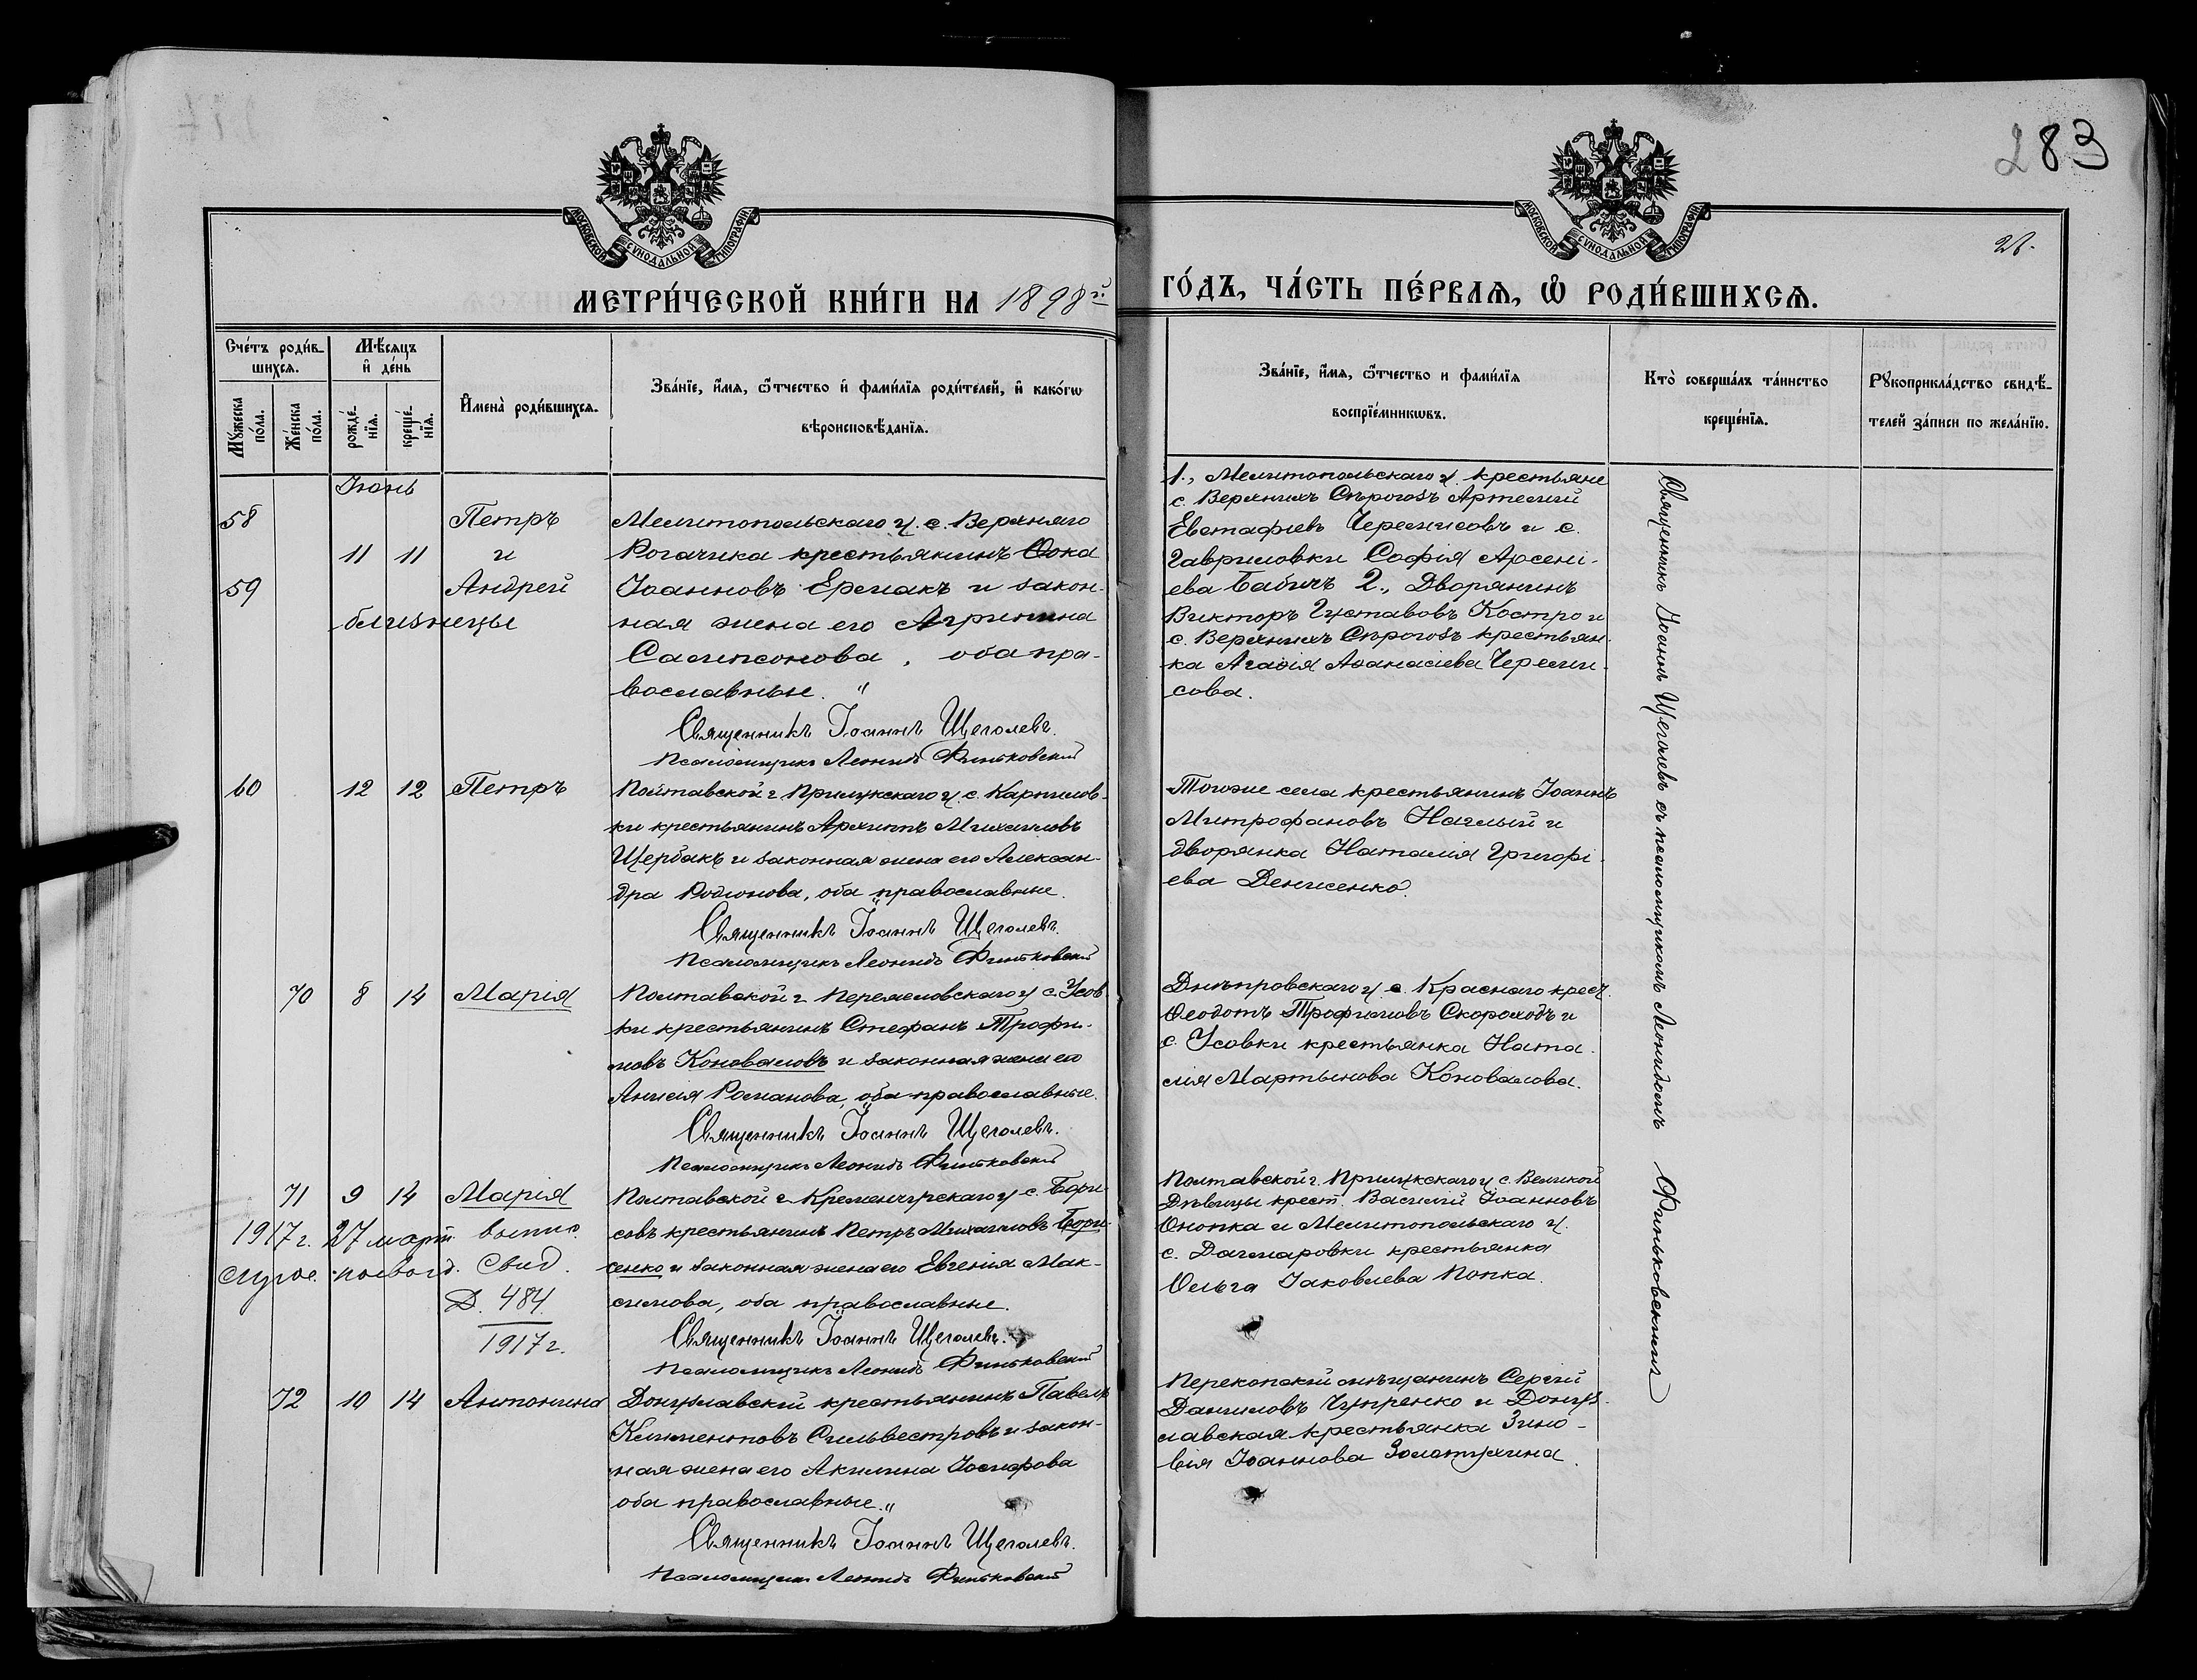 283
26.
МОСКОВСКОЙ СУНОДАЛЬНОЙ ТИПОГРАФІИ
МОСКОВСКОЙ СУНОДАЛЬНОЙ ТИПОГРАФІИ
МЕТРИ́ЧЕСКОЙ КНИ́ГИ НА 1898й
ГО́ДЪ, ЧА́СТЬ ПЕ́РВАѦ, Ѡ҆ РОДИ́ВШИХСѦ.
Сче́тъ роди́в-
шихсѧ.
Мꙋжеска по́ла.
Же́нска по́ла.
Мѣ́сѧцъ
и҆ де́нь
рожде́-
нїѧ.
креще́-
нїѧ.
И҆мена̀ роди́вшихсѧ.
Зва́нїе, и҆́мѧ, ѻ҆́тчество и҆ фами́лїѧ роди́телей, и҆ како́гѡ
вѣроисповѣ́данїѧ.
Зва́нїе, и҆́мѧ, ѻ҆́тчество и фами́лїѧ
воспрїе́мникѡвъ.
Кто̀ соверша́лъ та́инство
креще́нїѧ.
Рꙋкоприкла́дство свидѣ́-
телей за́писи по жела́нїю.
Іюнь
58
11 11
59
Петръ
и
Андрей
близнецы
Мелитопольскаго у. с. Верхняго
Рогачика крестьянинъ Ѳока
Іоанновъ Ермакъ и закон-
ная жена его Агрипина
Сампсонова, оба пра-
вославные. "
Священникъ Іоаннъ Щеголевъ.
Псаломщикъ Леонидъ Финьковскій
1., Мелитопольскаго у. крестьяне
с. Верхнихъ Сѣрогозъ Артемій
Евстафіевъ Черемисовъ и с.
Гавриловки Софія Арсені-
ева Бабичъ 2., Дворянинъ
Викторъ Густавовъ Костро и
с. Верхнихъ Сѣрогозъ крестьян-
ка Агаѳія Аѳанасіева Череми-
сова.
60 12 12 Петръ
Полтавской г. Прилукскаго у. с. Карпилов-
ки крестьянинъ Архиппъ Михаиловъ
Щербакъ и законная жена его Алексан-
дра Родионова, оба православные.
Священникъ Іоаннъ Щеголевъ.
Псаломщикъ Леонидъ Финьковскій
Тогоже села крестьянинъ Іоаннъ
Митрофановъ Наглый и
дворянка Наталія Григорі-
ева Денисенко.
70 8 14 Марія
Полтавской г. Переяславскаго у с. Усов-
ки крестьянинъ Стефанъ Трофи-
мовъ Коноваловъ и законная жена его
Анисія Романова, оба православные.
Священникъ Іоаннъ Щеголевъ.
Псаломщикъ Леонидъ Финьковскій
Днѣпровскаго у. с. Краснаго крест.
Ѳеодотъ Трофимовъ Скороходъ и
с. Усовки крестьянка Ната-
лія Мартынова Коновалова.
71 9 14 Марія
1917 г. 27 март. выпис.
Свид.
Д. 484
1917 г.
Полтавской г. Кременчугскаго у с. Бори-
совъ крестьянинъ Петръ Михаиловъ Бори-
сенко и законная жена его Евгенія Мак-
симова, оба православные.
Священникъ Іоаннъ Щеголевъ.
Псаломщикъ Леонидъ Финьковскій
Полтавской г. Прилукскаго у с. Великой
Дѣвицы крест. Василій Іоанновъ
Онопка и Мелитопольскаго у.
с. Дагмаровки крестьянка
Ольга Іаковлева Попка.
72 10 14 Антонина
Донузлавскій крестьянинъ Павелъ
Климентовъ Сильвестровъ и закон-
ная жена его Акилина Іосифова
оба православные. "
Священникъ Іоаннъ Щеголевъ.
Псаломщикъ Леонидъ Финьковскій
Перекопскій мѣщанинъ Сергій
Даниловъ Чупренко и Донуз-
лавская крестьянка Зино-
вія Іоаннова Золотухина.
Священникъ Іоаннъ Щеголевъ съ псаломщикомъ Леонидомъ Финьковскимъ